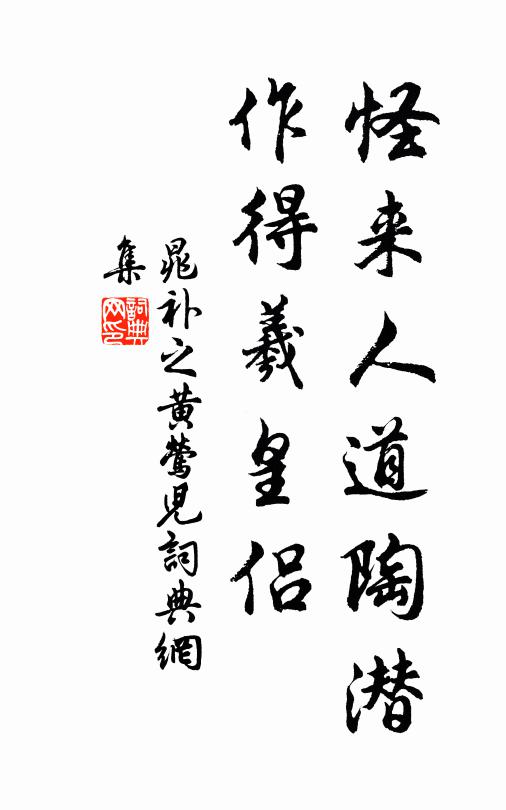 怪来人道陶潜
作得羲皇侣
晁补之黄莺儿詞典網
集
詞典网印